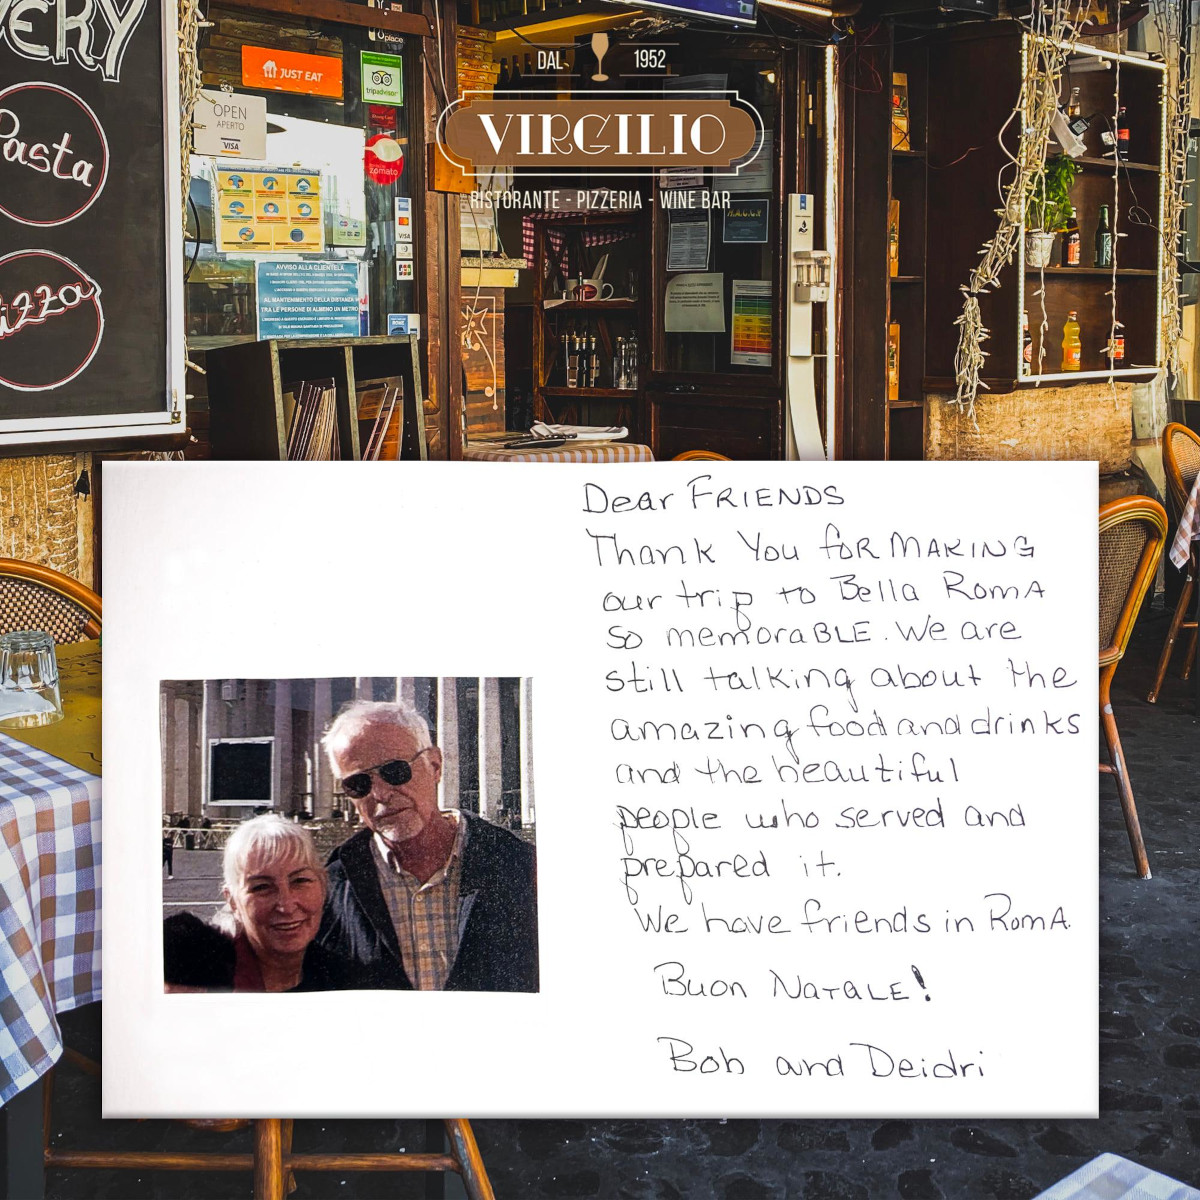 ERY
Pasta
izza
JUST EAT
tripadvisor
OPEN
APERTO
VISA
zomato
VISA
AVVISO ALLA CLIENTELA
AL MANTENIMENTO DELLA DISTANZA
TRA LE PERSONE DI ALMENO UN METRO
DAL 1952
VIRGILIO
RISTORANTE - PIZZERIA - WINE BAR
Dear FRIENDS
Thank You for MAKING
our trip to Bella RomA
so memoraBLE. We are
still talking about the
amazing food and drinks
and the beautiful
people who served and
prepared it.
We have friends in RomA.
Buon NATALE!
Bob and Deidri